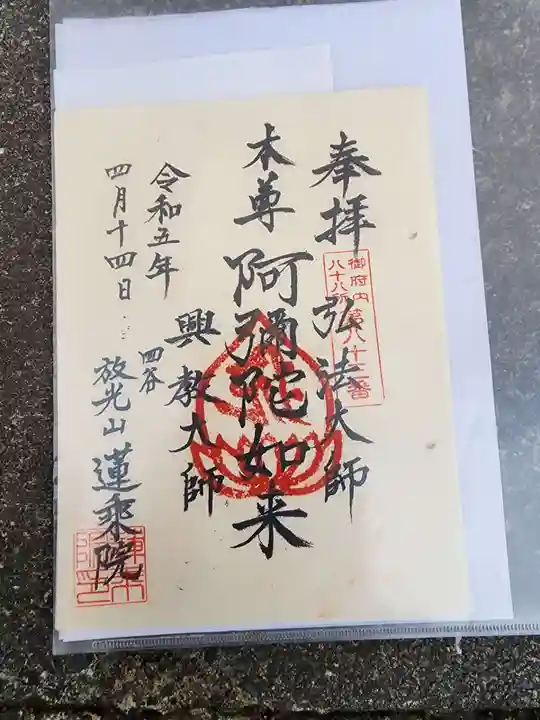 奉拝
弘法大師
御府内
八十八所
第八十三番
本尊
阿彌陀如来
興教大師
令和五年
四月十四日
四谷
放光山
蓮乗院